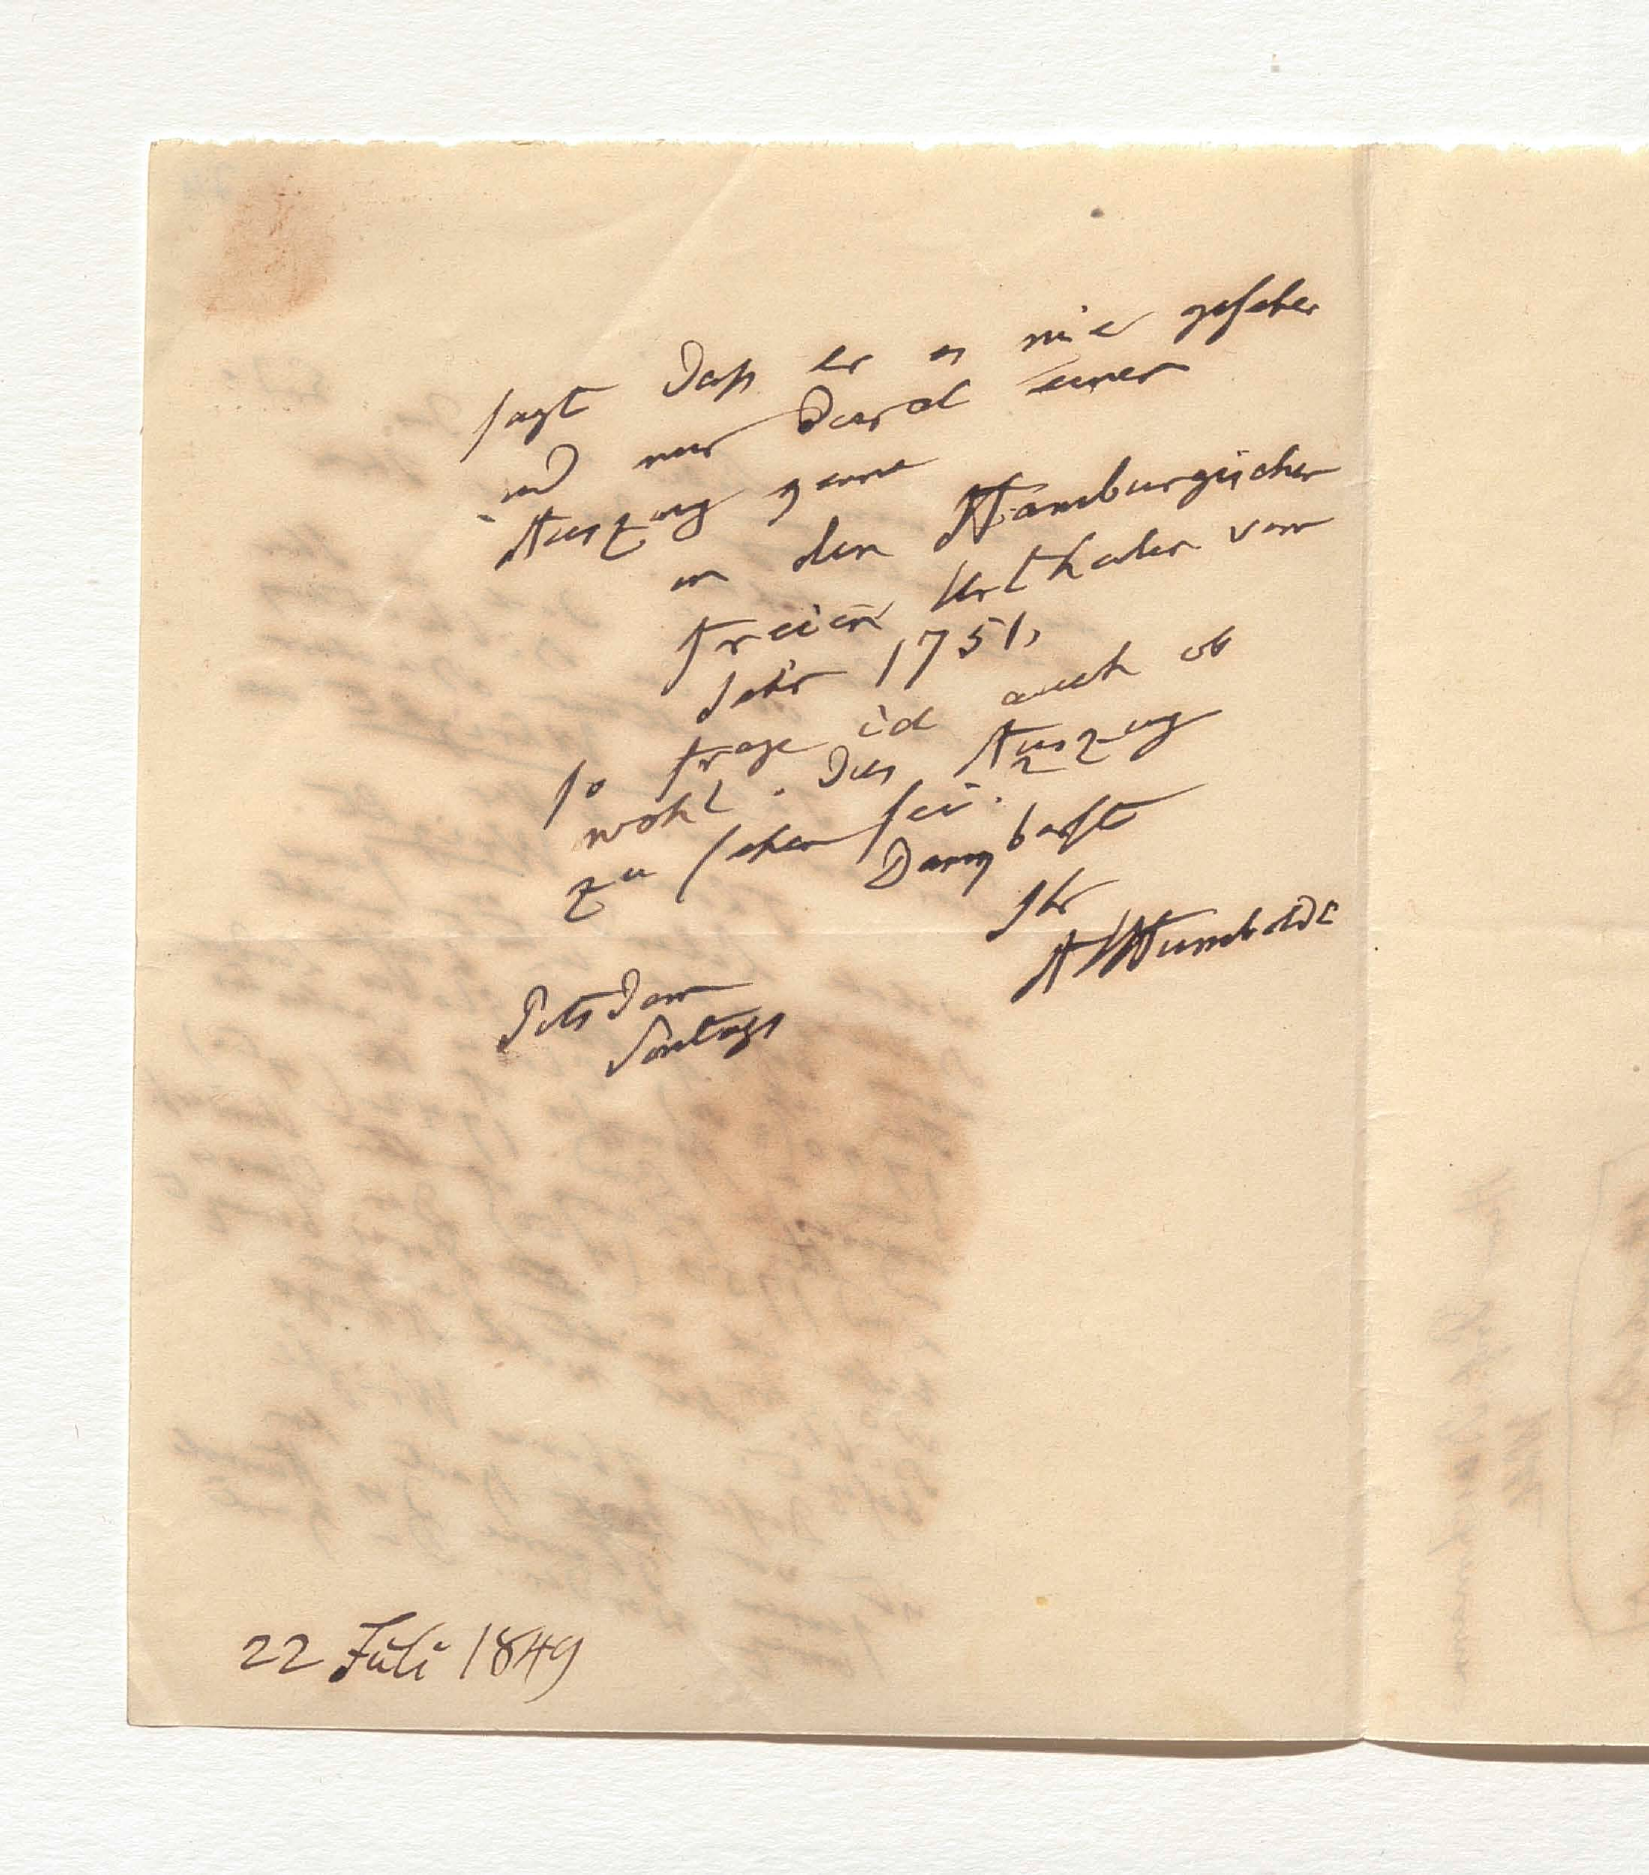 sagt daß er es nie gesehen
und nur durch einen
Auszug kenne
in den Hamburgischen
freien Urtheilen vom
Jahr 1751,
so frage ich auch ob
wohl dies Auszug
zu sehen sei.
Dankbarst
Ihr
AvHumboldt
Potsdam
Sontags
22 Juli 1849